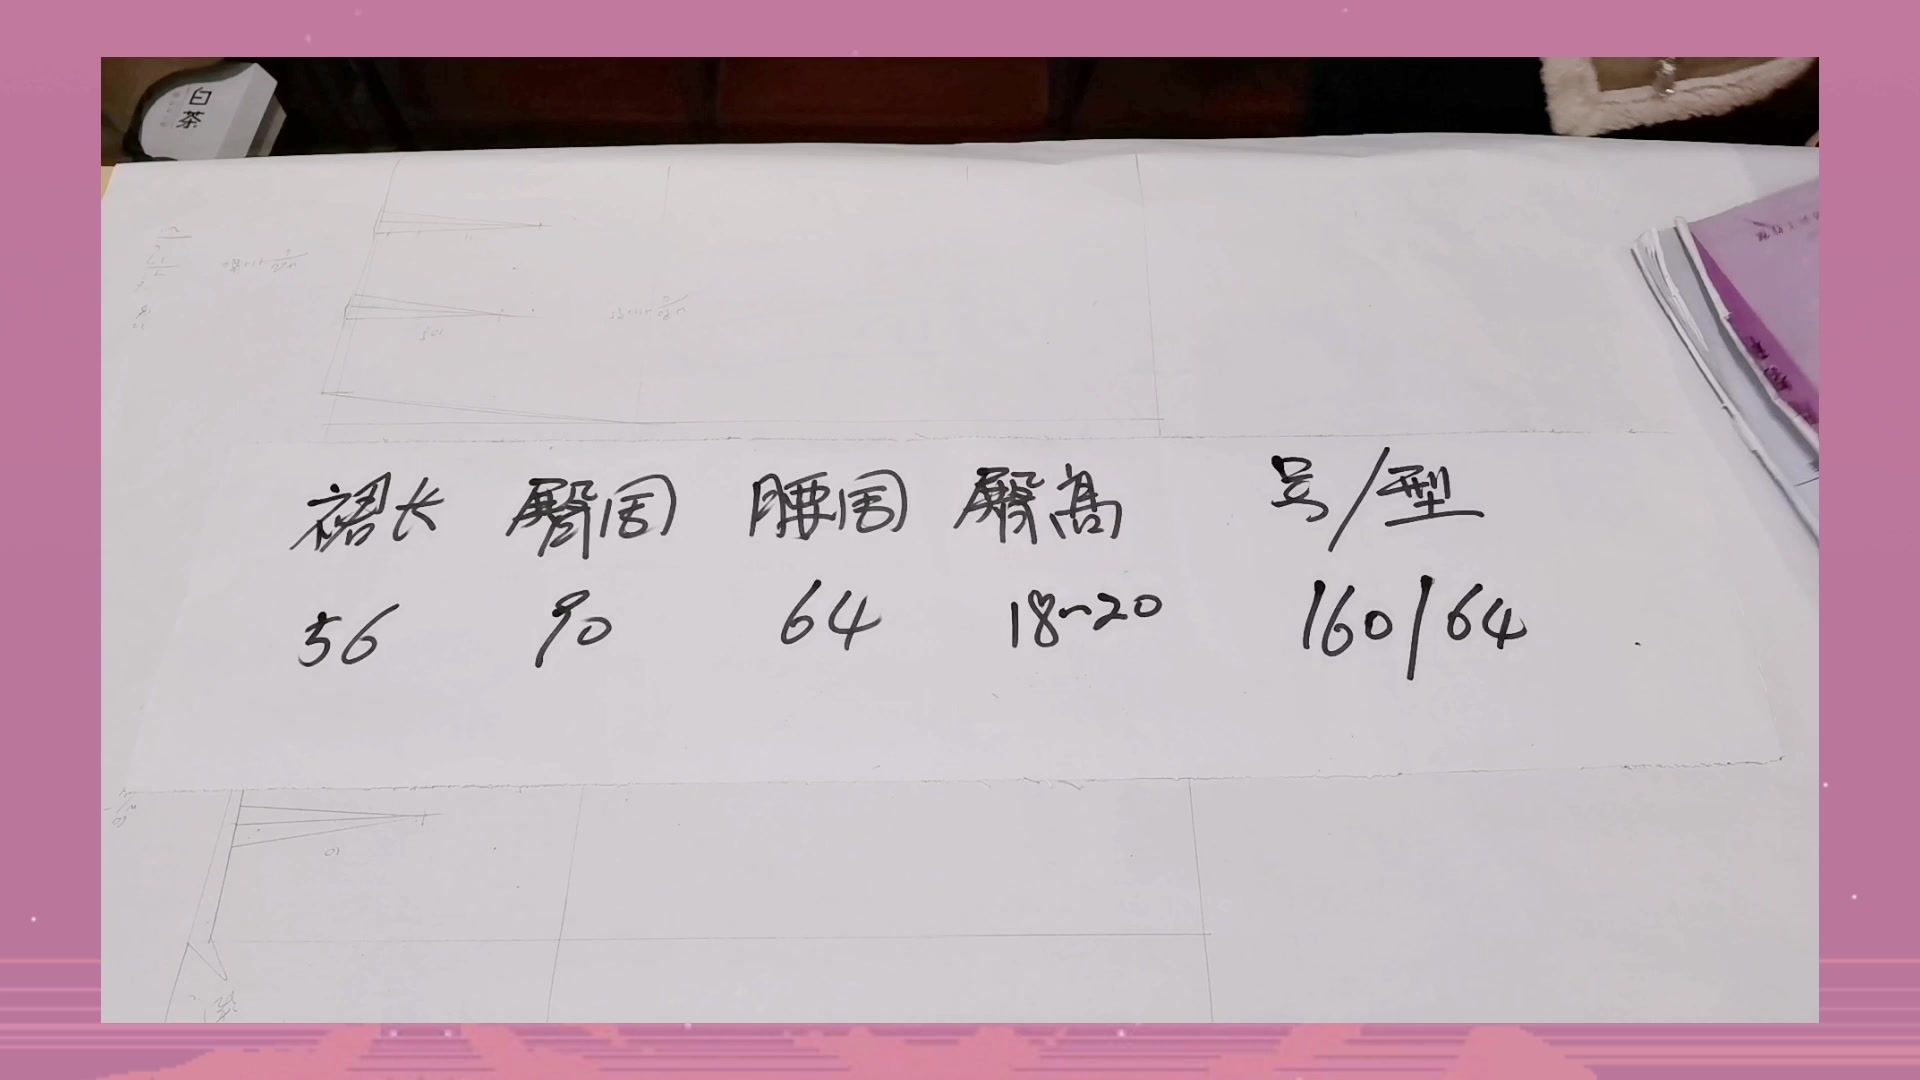 白茶
裙长 臀围 腰围 臀高 号/型
56 90 64 18~20 160/64
10